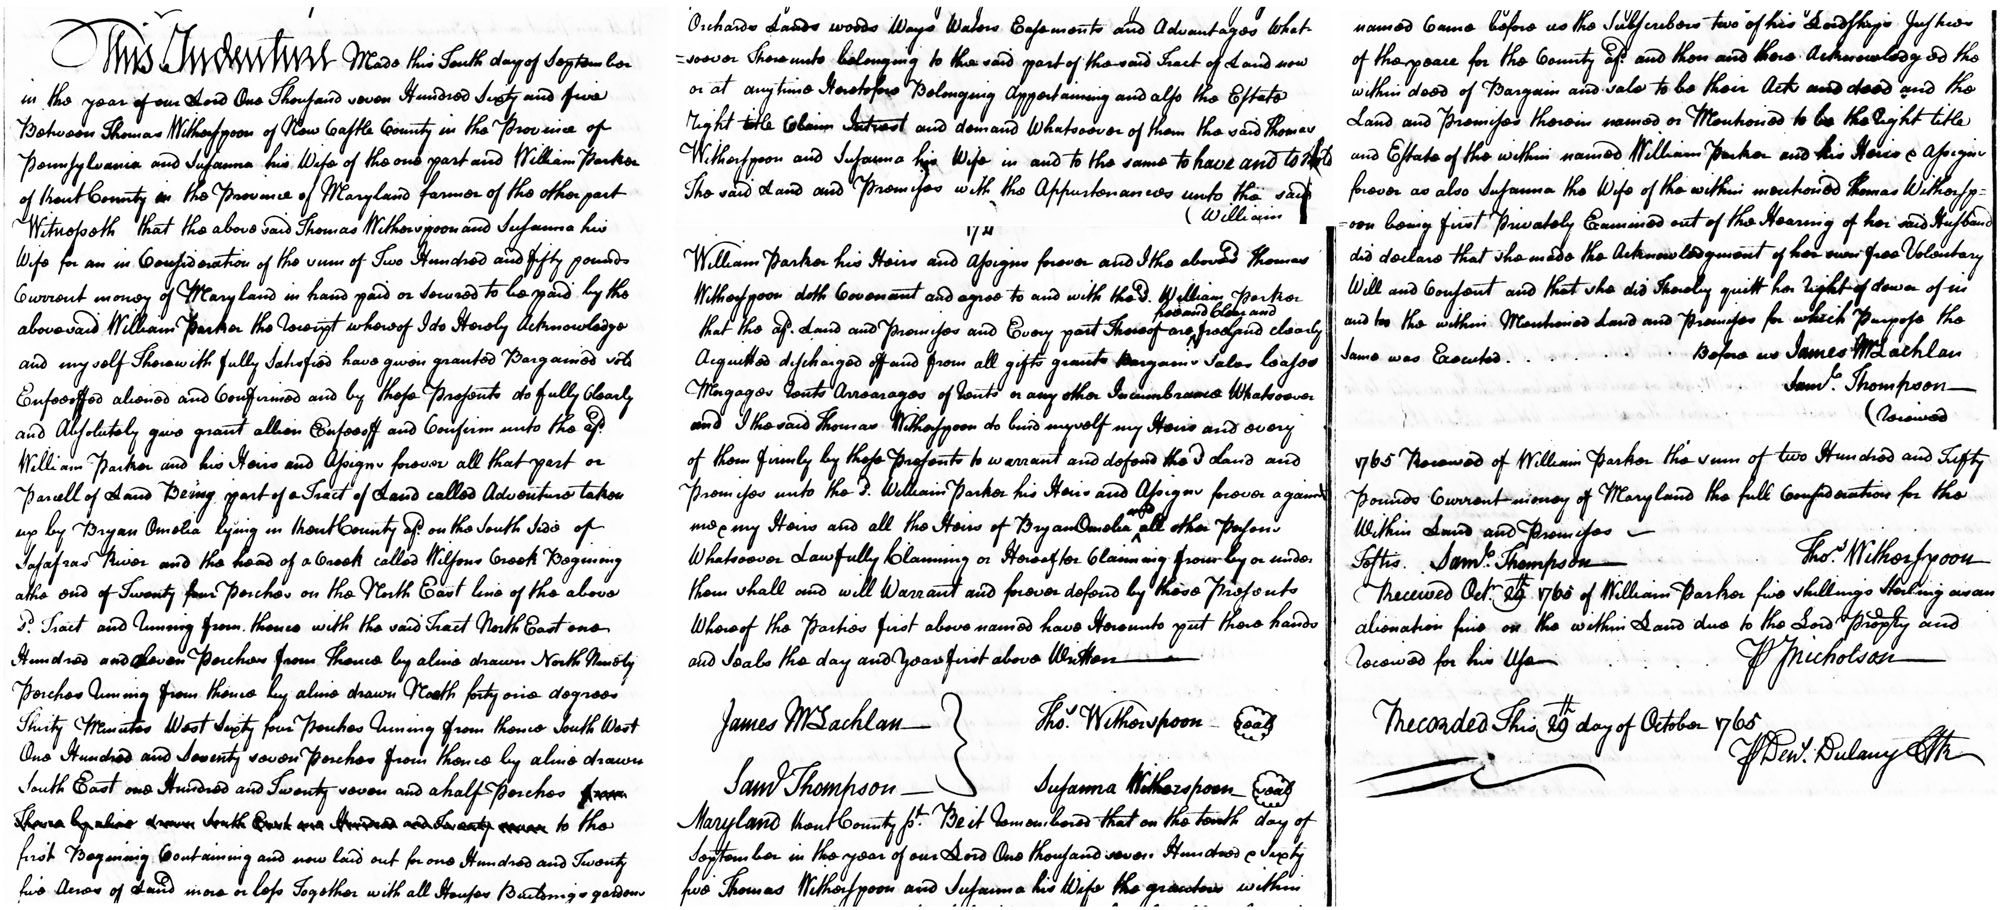 This Indenture Made this Tenth day of September
in the year of our Lord One Thousand seven Hundred Sixty and five
Between Thomas Witherspoon of New Castle County in the Province of
Pennsylvania and Susanna his Wife of the one part and William Parker
of Kent County in the Province of Maryland farmer of the other part
Witnesseth that the above said Thomas Witherspoon and Susanna his
Wife for an in Consideration of the sum of Two Hundred and fifty pounds
Current money of Maryland in hand paid or secured to be paid by the
abovesaid William Parker the receipt whereof I do Hereby Acknowledge
and myself Therewith fully Satisfied have given granted Bargained sold
Enfeoffed aliened and Confirmed and by these Presents do fully Clearly
and Absolutely give grant allien Enfeoff and Confirm unto the afd.
William Parker and his Heirs and Assigns forever all that part or
Parcell of Land Being part of a Tract of Land called Adventure taken
up by Bryan Omelia lying in Kent County afd. on the South Side of
Sasafras River and the head of a Creek called Wilsons Creek Begining
atho end of Twenty four Perches on the North East line of the above
sd. Tract and runing from thence with the said Tract North East one
Hundred and Eleven Perches from thence by aline drawn North Ninety
Perches runing from thence by aline drawn North forty one degrees
Thirty Minutes West Sixty four Perches runing from thence South West
One Hundred and Seventy seven Perches from thence by aline drawn
South East one Hundred and Twenty seven and a half Perches from
Thence by aline drawn South East one Hundred and Twenty seven to the
first Begining Containing and now laid out for one Hundred and Twenty
five Acres of Land more or less Together with all Houses Buildings gardens
Orchards Lands woods Ways Waters Easements and Advantages What-
=soever Thereunto belonging to the said part of the said Tract of Land now
or at anytime Heretofore Belonging Appertaining and also the Estate
right title Claim Intrest and demand Whatsoever of them the said Thomas
Witherspoon and Susanna his Wife in and to the same to have and to Hold
The said Land and Premises with the Appurtenances unto the said
(William
William Parker his Heirs and Assigns forever and I the abovesd Thomas
Witherspoon doth Covenant and agree to and with the sd. William Parker
that the afd. Land and Premises and Every part Thereof are free and Clear and freed and clearly
Acquitted discharged off and from all gifts grants Bargains Sales leases
Morgages rents Arrearages of rents or any other Incumbrance Whatsoever
and I the said Thomas Witherspoon do bind myself my Heirs and every
of them firmly by these Presents to warrant and defend the sd Land and
Premises unto the sd. William Parker his Heirs and Assigns forever against
me & my Heirs and all the Heirs of Bryan Omelia and all other Persons
Whatsoever Lawfully Claiming or Hereafter Claiming from by or under
them shall and will Warrant and forever defend by these Presents
Whereof the Parties first above named have Hereunto put there hands
and Seals the day and Year first above Written
James McLachlan Thos. Witherspoon seal
Saml Thompson Susanna Witherspoon seal
Maryland Kent County sst. Be it remembered that on the tenth day of
September in the year of our Lord One thousand seven Hundred & Sixty
five Thomas Witherspoon and Susanna his Wife the grantors within
named Came before us the Subscribers two of his Lordships Justices
of the peace for the County afd. and then and there Acknowledged the
within deed of Bargain and sale to be their Act and deed and the
Land and Premises therein named or Mentioned to be the right title
and Estate of the within named William Parker and his Heirs & Assigns
forever as also Susanna the Wife of the within mentioned Thomas Withersp=
=oon being first Privately Examined out of the Hearing of her said Husband
did declare that she made the Acknowledgment of her own free Voluntary
Will and Consent and that she did Thereby quitt her right of dower of in
and too the within Mentioned Land and Premises for which Purpose the
Same was Executed . . . . . . . Before us James McLachlan
Saml. Thompson
(received
1765 Received of William Parker the sum of two Hundred and Fifty
Pounds Current money of Maryland the full Consideration for the
Within Land and Premises
Testis. Saml. Thompson Thos. Witherspoon
Received Octr. 29th 1765 of William Parker five shillings Sterling as an
alienation fine on the within Land due to the Lord Proply and
received for his Use
P Jnicholson
Recorded This 29th day of October 1765
P Den. Dulany Clk